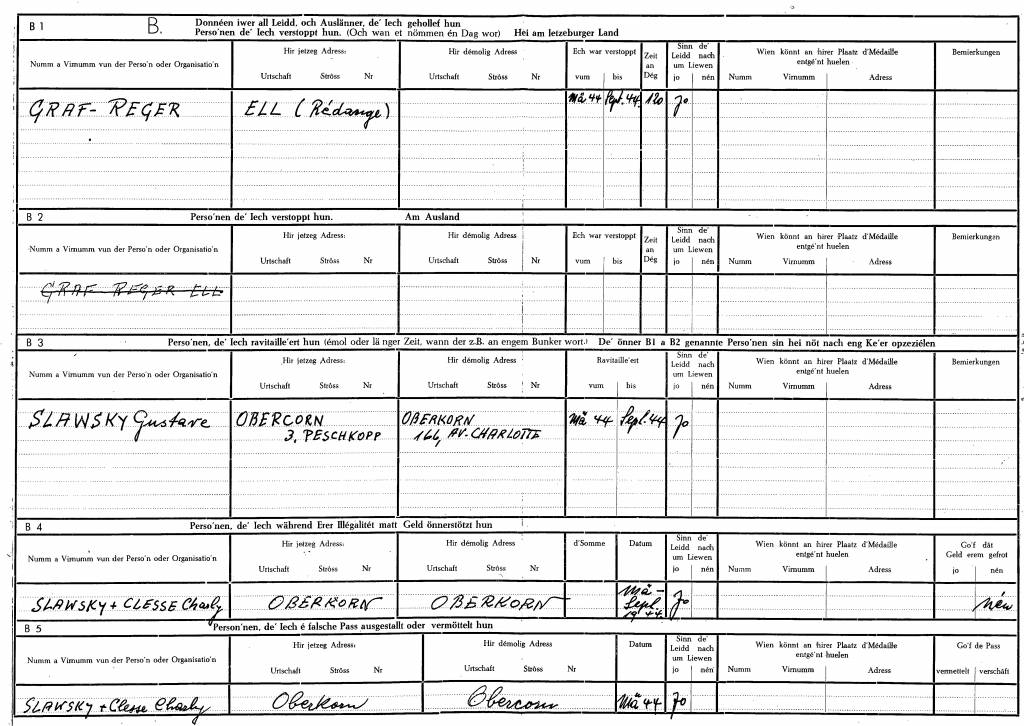 B 1 B. Donnéen iwer all Leidd, och Auslänner, de' Iech gehollef hun
Perso'nen de' Iech verstoppt hun. (Och wan et nömmen én Dag wor) Hei am letzeburger Land
Numm a Virnumm vun der Perso'n oder Organisatio'n
Hir jetzeg Adress:
Urtschaft Ströss Nr
Hir démolig Adress
Urtschaft Ströss Nr
Ech war verstoppt
vum bis
Zeit
an
Dég
Sinn de'
Leidd nach
um Liewen
jo nén
Wien könnt an hirer Plaatz d'Médaille
entgé'nt huelen
Numm Virnumm Adress
Bemierkungen
GRAF-REGER ELL (Rédange) Mä 44 Sept. 44 120 Jo
B 2 Perso'nen de' Iech verstoppt hun. Am Ausland
Numm a Virnumm vun der Perso'n oder Organisatio'n
Hir jetzeg Adress:
Urtschaft Ströss Nr
Hir démolig Adress:
Urtschaft Ströss Nr
Ech war verstoppt
vum bis
Zeit
an
Dég
Sinn de'
Leidd nach
um Liewen
jo nén
Wien könnt an hirer Plaatz d'Médaille
entgé'nt huelen
Numm Virnumm Adress
Bemierkungen
GRAF REGER ELL
B 3 Perso'nen, de' Iech ravitaille'ert hun (émol oder länger Zeit, wann der z.B. an engem Bunker wort.) De' önner B1 a B2 genannte Perso'nen sin hei nöt nach eng Ke'er opzeziélen
Numm a Virnumm vun der Perso'n oder Organisatio'n
Hir jetzeg Adress:
Urtschaft Ströss Nr
Hir démolig Adress:
Urtschaft Ströss Nr
Ravitaille'ert
vum bis
Sinn de'
Leidd nach
um Liewen
jo nén
Wien könnt an hirer Plaatz d'Médaille
entgé'nt huelen
Numm Virnumm Adress
Bemierkungen
SLAWSKY Gustave OBERCORN OBERKORN Mä 44 Sept. 44 Jo
3, PESCHKOPP 166, AV. CHARLOTTE
B 4 Perso'nen, de' Iech während Erer Illégalitét matt Geld önnerstötzt hun
Numm a Virnumm vun der Perso'n oder Organisatio'n
Hir jetzeg Adress:
Urtschaft Ströss Nr
Hir démolig Adress
Urtschaft Ströss Nr
d'Somme
Datum
Sinn de'
Leidd nach
um Liewen
jo nén
Wien könnt an hirer Plaatz d'Médaille
entgé'nt huelen
Numm Virnumm Adress
Go'f dât
Geld erem gefrot
jo nén
SLAWSKY + CLESSE Charly OBERKORN OBERKORN Mä - Sept. 1944 Jo nén
B 5 Person'nen, de' Iech é falsche Pass ausgestallt oder vermöttelt hun
Numm a Virnumm vun der Perso'n oder Organisatio'n
Hir jetzeg Adress:
Urtschaft Ströss Nr
Hir démolig Adress:
Urtschaft Ströss Nr
Datum
Sinn de'
Leidd nach
um Liewen
jo nén
Wien könnt an hirer Plaatz d'Médaille
entgé'nt huelen
Numm Virnumm Adress
Go'f de Pass
vermettelt verschâft
SLAWSKY + Clesse Charly Oberkorn Obercorn Mä 44 Jo